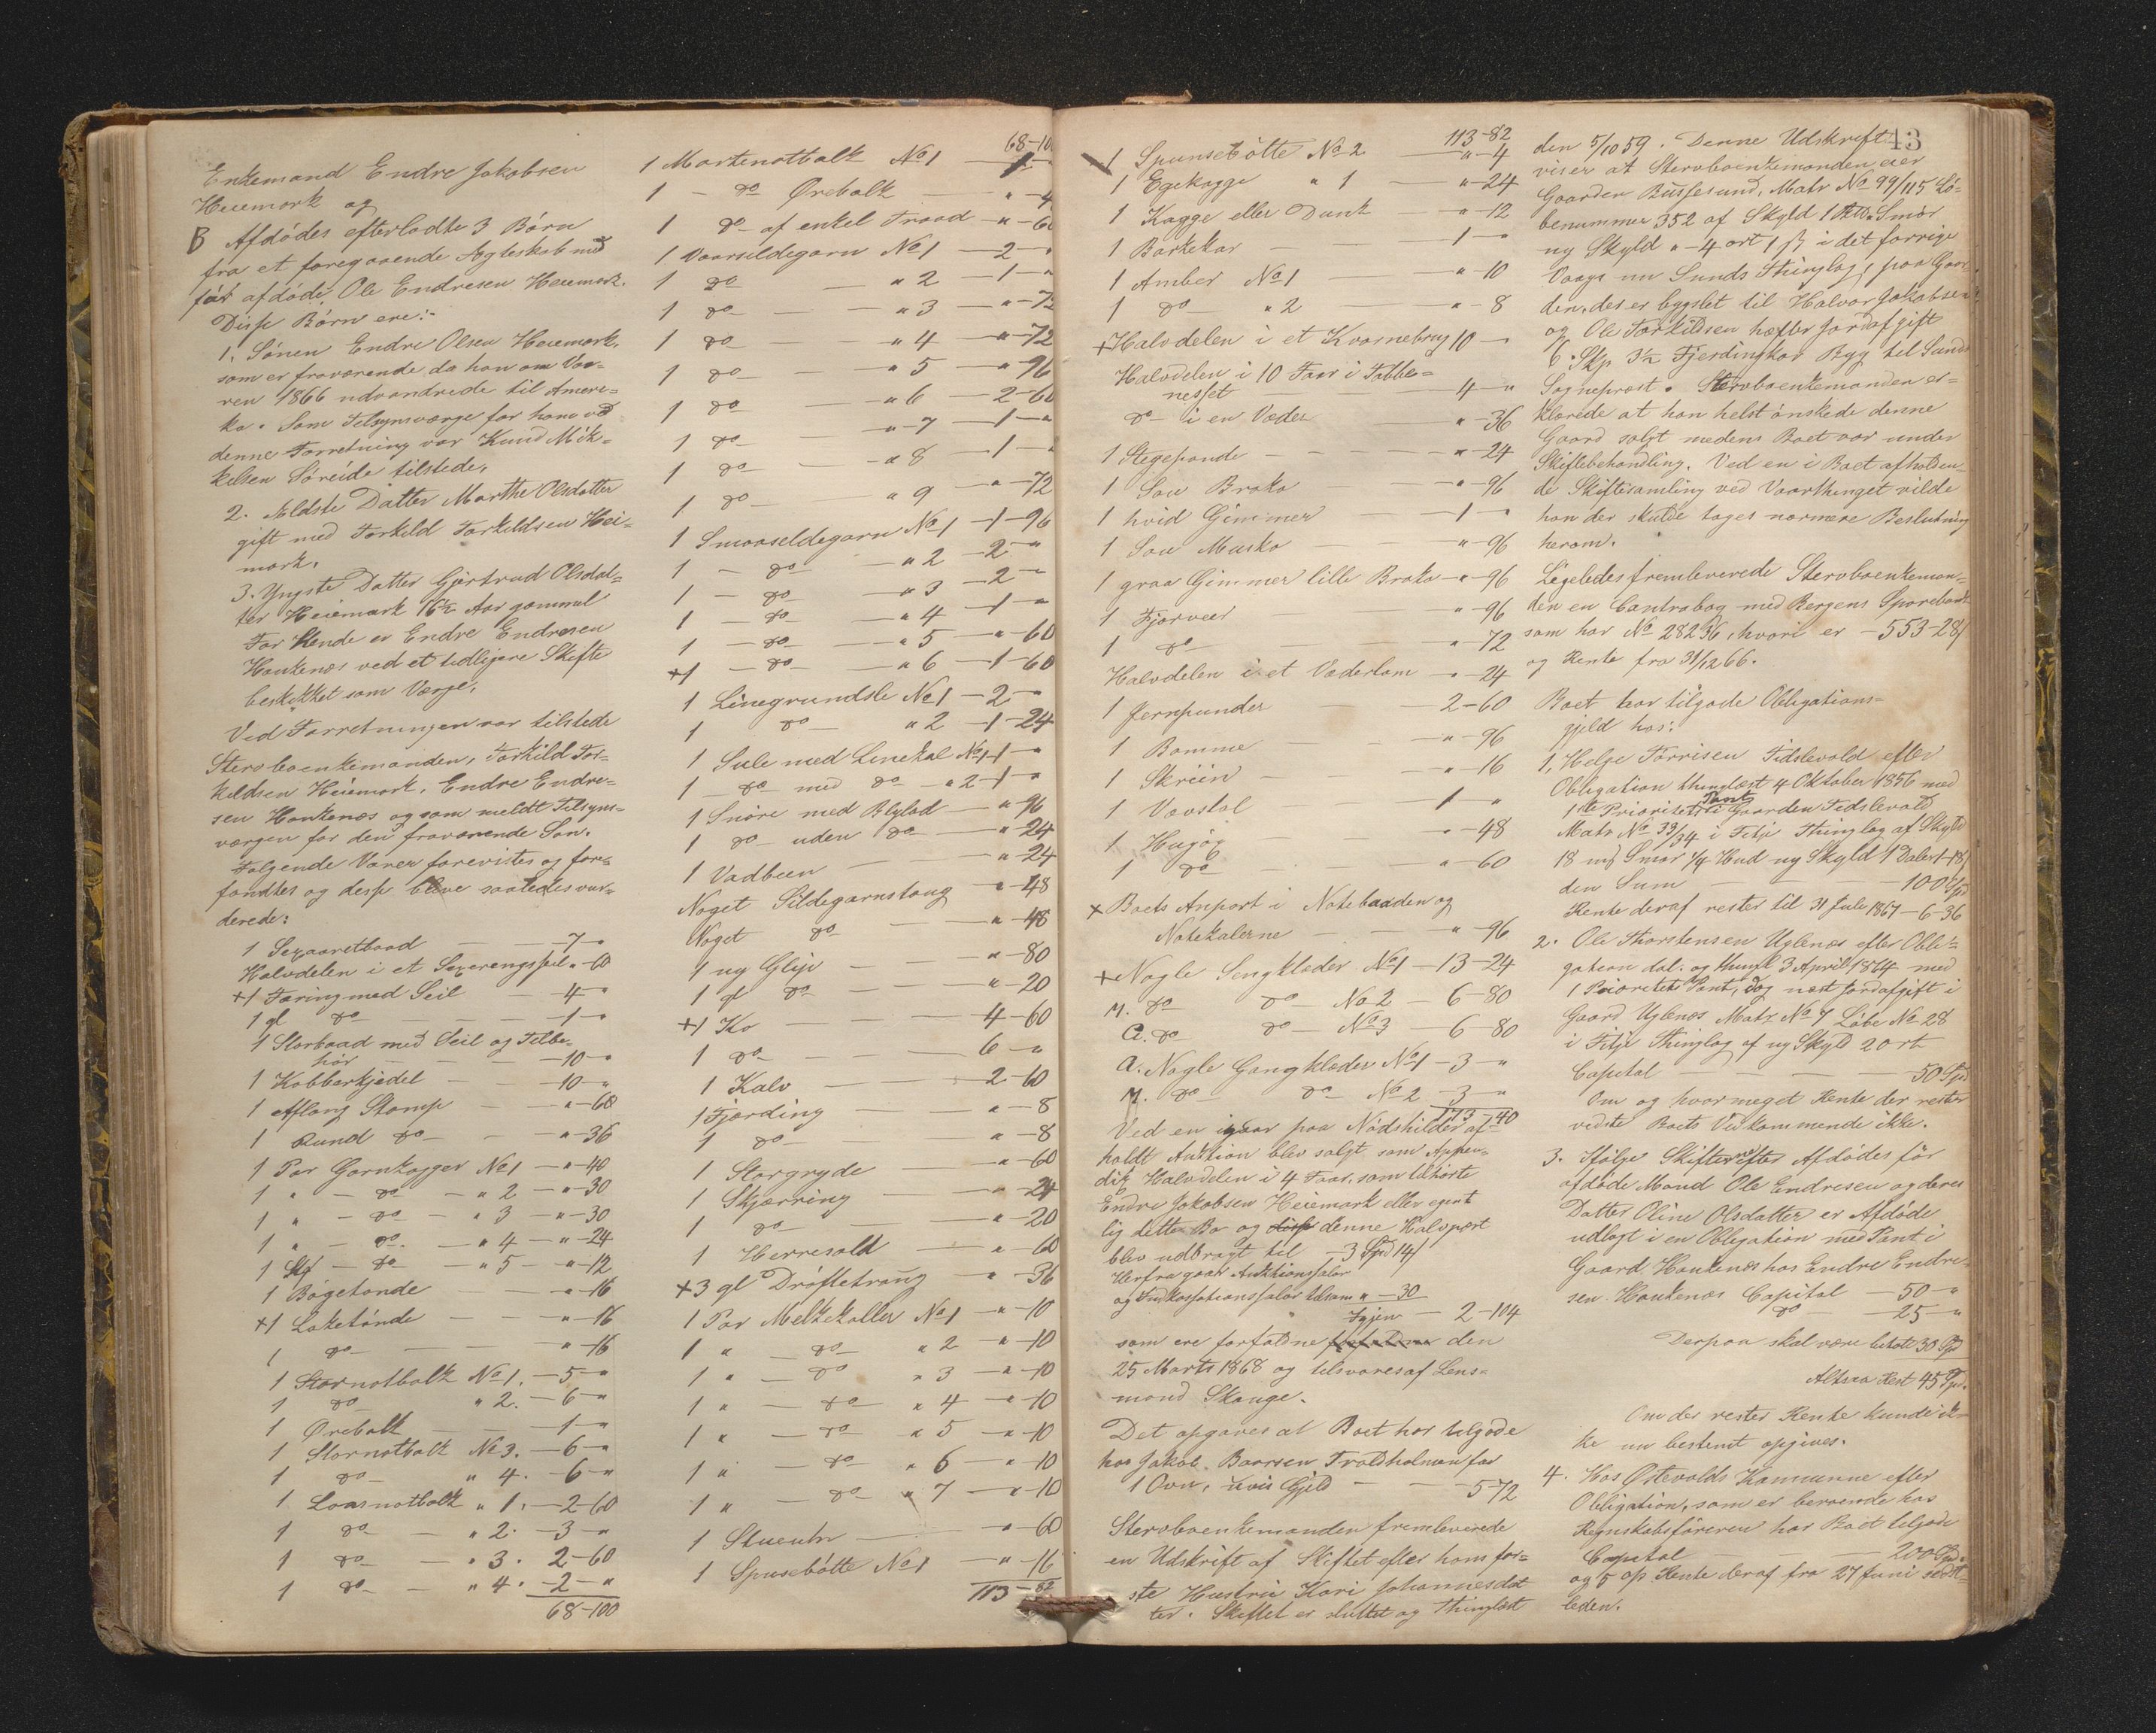 Enkemand Endre Jakobsen
Heiemark og
B Afdødes efterladte 3 Børn
fra et foregaaende Ægteskab med
før afdøde Ole Endresen Heiemark.
Disse Børn ere:
1. Sønen Endre Olsen Heiemark,
som er fraværende da han om Vaa-
ren 1866 udvandrede til Ameri-
ka. Som Tilsynsværge for ham ved
denne Forretning var Knud Mik-
kelsen Søreide tilstede.
2. Ældste Datter Marthe Olsdatter
gift med Torkild Torkildsen Hei-
mark.
3. Yngste Datter Gjertrud Olsdat-
ter Heiemark 16½ Aar gammel
For Hende er Endre Endresen
Haukenæs ved et tidligere Skifte
beskikket som Værge.
Ved Forretningen var tilstede
Stervboenkemanden, Torkild Tor-
kildsen Heiemark, Endre Endre-
sen Haukenæs og som meldt Tilsyns-
værgen for den fraværende Søn.
Følgende Varer forevistes og fore-
fandtes og desse bleve saaledes vur-
derede:
1 Sexaaretbaad — 7 - "
Halvdelen i et Sexærengsseil " - 60
+1 Færing med Seil — 4 - "
1 gl do — 1 - "
1 Storbaad med Seil og Tilbe-
hør — 10 - "
1 Kobberkjedel — 10 - "
1 Aflang Stamp — " - 60
1 Rund do — " - 36
1 Par Garnkagger No 1 — " - 40
1 " — do — " 2 — " - 30
1 " — do — " 3 — " - 30
1 " — do — " 4 — " - 24
1 Stk — do — " 5 — " - 12
1 Bøgetønde — " - 16
+1 Laketønde — " - 16
1 do — " - 16
1 Stornotbolk No 1. — 5 - "
1 do " 2. — 6 - "
1 Ørebolk — 1 - "
1 Stornotbolk No 3. — 6 - "
1 do " 4. — 6 - "
1 Laasnotbolk " 1. — 2 - 60
1 do — " 2. — 3 - "
1 do — " 3. 2 - 60
1 do — " 4. — 2 - "
68 - 100
68 - 100
1 Mortenotbolk No 1 — 1 - "
1 — do Ørebolk — " - 4
1 do af enkel Traad — " - 60
1 Vaarsildegarn No 1 — 2 - "
1 do — " 2 — 1 - "
1 do — " 3 — " - 72
1 do — " 4 — " - 72
1 do — " 5 — " - 96
1 do — " 6 — 2 - 60
1 do — " 7 — 1 - "
1 do — " 8 — 1 - "
1 do — " 9 — " - 72
1 Smaasildegarn No 1 — 1 - 96
1 — do — " 2 — 2 - "
1 — do — " 3 — 2 - "
1 — do — " 4 — 1 - "
1 — do — " 5 — " - 60
+1 — do — " 6 — 1 - 60
1 Linegrundsle No 1 — 2 - "
1 do — " 2 — 1 - 24
1 Sule med Linekal No 1 — 1 - "
1 — do med do — " 2 — 1 - "
1 Snøre med Blylod — " - 96
1 do uden do — " - 24
1 Vadbeen — " - 24
Noget Sildegarnstoug — " - 48
Noget do — " - 48
1 ny Glip — " - 80
1 gl do — " - 20
+1 Ko — 4 - 60
1 do — 6 - "
1 Kalv — 2 - 60
1 Fjerding — " - 8
1 do — " - 8
1 Storgryde — " - 60
1 Skjærring — " - 24
1 do — " - 20
1 Herresold — " - 60
+3 gl Drøftetraug — " - 36
1 Par Melkekoller No 1 — " - 10
1 " — do " 2 " - 10
1 " — do " 3 — " - 10
1 " — do " 4 — " - 10
1 " — do " 5 " - 10
1 " — do " 6 — " - 10
1 " — do " 7 — " - 10
1 Stueuhr — " - 60
1 Spusebøtte No 1 — " - 16
113 - 82
113 - 82
1 Spunsebøtte No 2 — " - 4
1 Egekagge " 1 — " - 24
1 Kagge eller Dunk — " - 12
1 Barkekar — 1 - "
1 Amber No 1 — " - 10
1 do — " 2 — " - 8
+Halvdelen i et Kvernebrug 10 - "
Halvdelen i 10 Faar i Tobbe-
nesset — 4 - "
do — i en Væder " - 36
1 Stegepande — " - 24
1 Sau Broka — " - 96
1 hvid Gimmer — 1 - "
1 Sau Muska — " - 96
1 graa Gimmer lille Broka — " - 96
1 Fjorveir " - 96
1 do — " - 72
Halvdelen i et Væderlam — " - 24
1 Jernpunder — 2 - 60
1 Bomme — " - 96
1 Skriin — " - 16
1 Vævstol — 1 - "
1 Hugøg — " - 48
1 do — " - 60
+Boets Anport i Notebaaden og
Notekalerne — " - 96
+Nogle Sengklæder No 1 — 13 - 24
M. do do — No 2 — 6 - 80
A. do do — No 3 — 6 - 80
A. Nogle Gangklæder No 1 — 3 - "
M. do do No 2 3 - "
173 - 40
Ved en igaar paa Nødshilder af-
holdt Auktion blev solgt, som Appen-
dix Halvdelen i 4 Faar, som tilhørte
Endre Jakobsen Heiemark eller egent
lig dette Bo og disse denne Halvpart
blev udbragt til — 3 Spd 14ß
Herfra gaar Auktionssalær
og Inkassationssalær tilsam " - 30
Igjen — 2 - 104
som ere forfaldne forfaldne den
25 Marts 1868 og tilsvares af Lens-
mand Skauge.
Det opgaves at Boet har tilgode
hos Jakob Baarsen Troldholmen for
1 Ovn, uvis Gjeld — 5 - 72
Stervboenkemanden fremleverede
en Udskrift af Skiftet efter hans før-
ste Hustrue Kari Johannesdat
ter. Skiftet er sluttet og Thinglæst
43
den 5/10 59. Denne Udskrift
viser at Stervboenkemanden eier
Gaarden Bussesund, Matr No 99/115 Lø-
benummer 352 af Skyld 1 Smør
ny Skyld " - 4 ort 1 ß i det forrige
Vaags nu Sunds Thinglag, paa Gaar-
den, der er bygslet til Halvor Jakobsen
og Ole Torkildsen hæfter Jordafgift
6 Skp 3½ Fjerdingkar Byg til Sunds
Sogneprest. Stervboenkemanden er-
klærede at han helst ønskede denne
Gaard solgt medens Boet var under
Skiftebehandling. Ved en i Boet afholden-
de Skiftesamling ved Vaarthinget vilde
han der skulde tages nærmere Beslutning
herom.
Ligeledes fremleverede Stervboenkeman-
den en Contrabog med Bergens Sparebank
som har No 28236, hvori er — 553 - 28ß
og Rente fra 31/12 66.
Boet har tilgode Obligations-
gjeld hos:
1, Helge Tørrisen Tidslevold efter
Obligation thinglæst 4 Oktober 1856 med
1ste Prioritets Pant i Gaarden Tidslevold
Matr No 33/34 i Fitje Thinglag af Skyld
18 mß Smør ¼ Hud ny Skyld 1 Daler 1 - 18ß
den Sum — 100 Spd
Rente deraf rester til 31 Juli 1867 — 6 - 36
2. Ole Thorstensen Uglenæs efter Obli-
gation dat. og thingl 3 April 1874 med
1 Prioritets Pant, dog næst Jordafgift i
Gaard Uglenæs Matr No 7 Løbe No 28
i Fitje Thinglag af ny Skyld 2 ort
Capital — 50 Spd
Om og hvormeget Rente der rester
vidste Boets Vedkommende ikke.
3. Ifølge Skiftet efter Afdødes før
afdøde Mand Ole Endresen og deres
Datter Oline Olsdatter er Afdøde
udlagt i en Obligation med Pant i
Gaard Haukenæs hos Endre Endre-
sen Haukenæs Capital — 50 - "
do — 25 - "
Derpaa skal være betalt 30 Spd
Altsaa Rest 45 Spd.
Om der rester Rente kunde ik-
ke nu bestemt opgives.
4. Hos Østevolds Kommune efter
Obligation, som er beroende hos
Regnskabsføreren har Boet tilgode
Capital — 200 Spd.
og 5 op Rente deraf fra 27 Juni sidst-
leden.